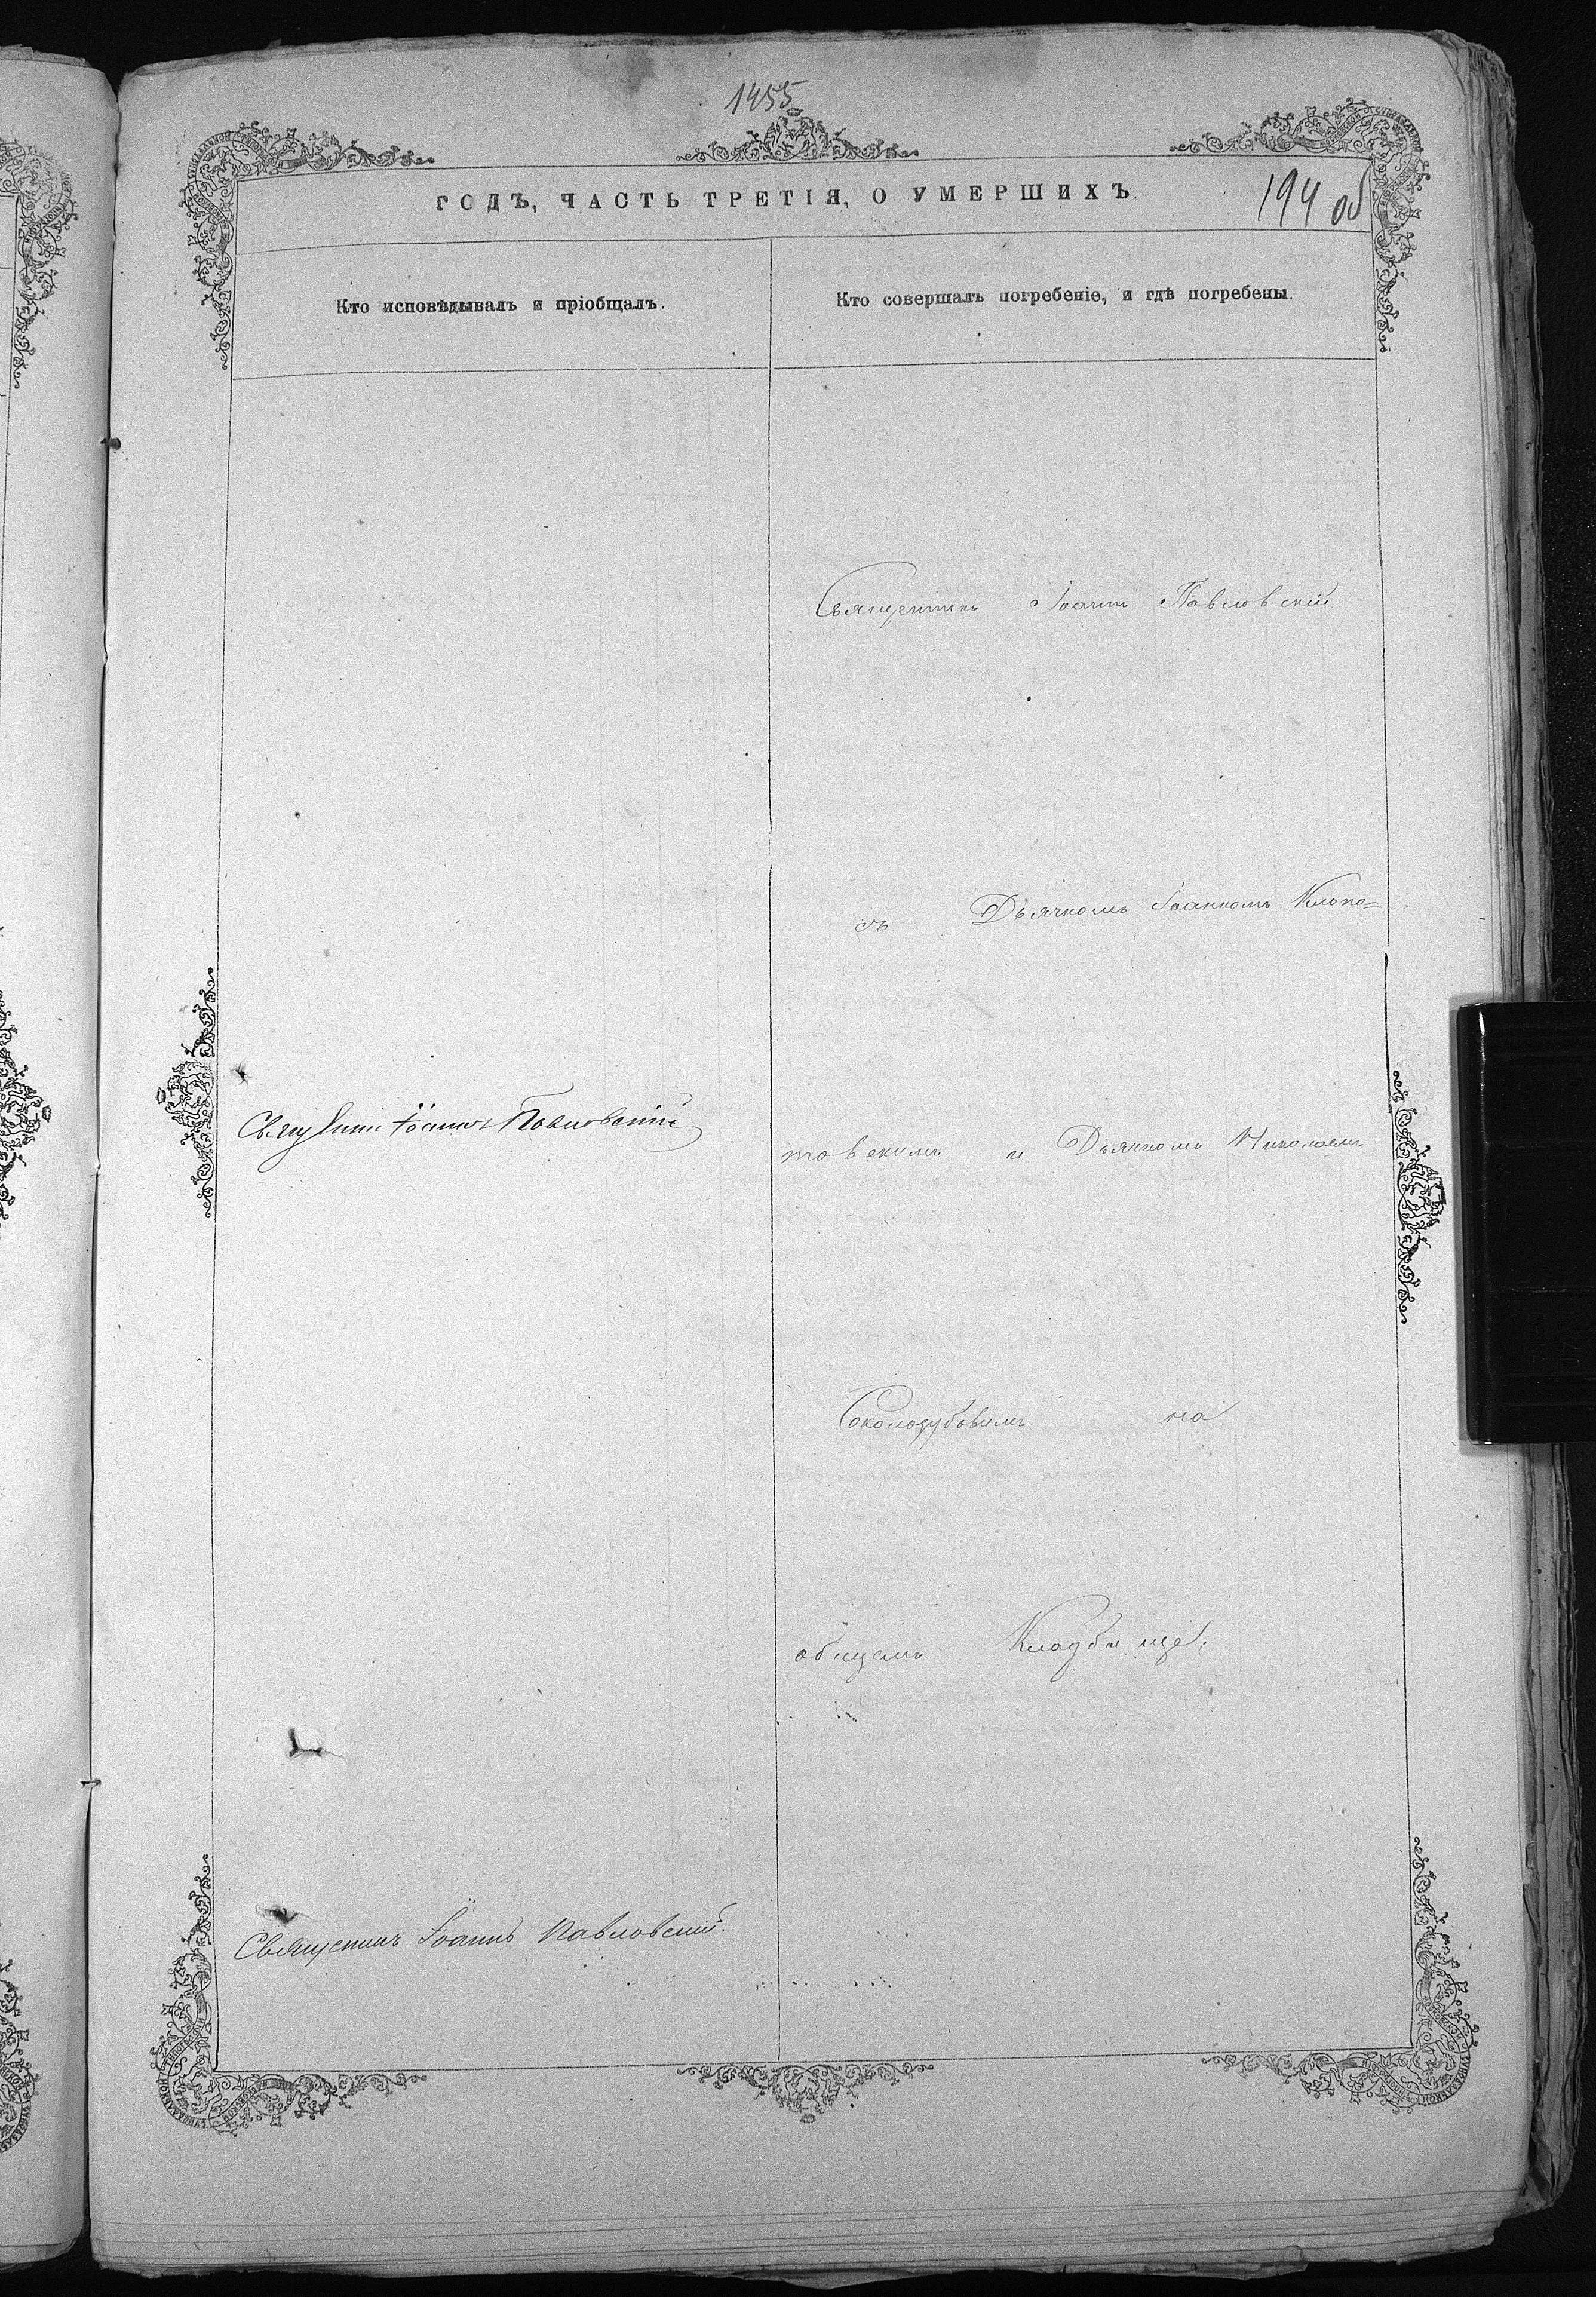 1455
ГОДЪ, ЧАСТЬ ТРЕТІЯ, О УМЕРШИХЪ.
194 об
Кто исповѣдывалъ и пріобщалъ.
Кто совершалъ погребеніе, и гдѣ погребены.
Священникъ Іоаннъ Павловскій
съ Дьячкомъ Іоанномъ Клопо=
Іоаннъ Павловскій
товскимъ и Дьячкомъ Николаемъ
Соколодубовымъ на
общемъ Кладбище.
Священникъ Іоаннъ Павловскій.